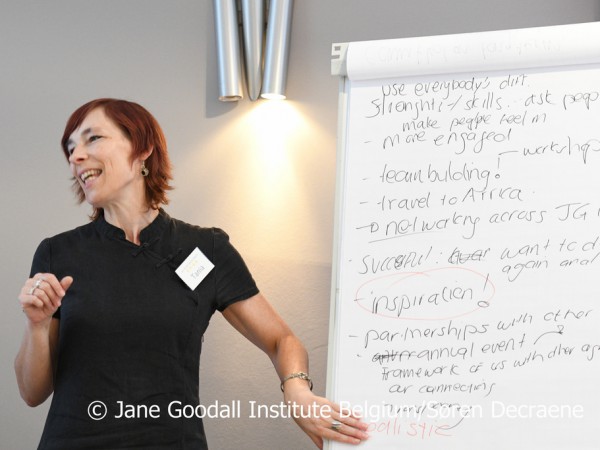 use everybody's diff.
Strenghts/skills. ask peop
make people feel m
- more engaged
workshops
- teambuilding!
- travel to Africa.
→ networking across JG
- succesful: want to d
again and
- inspiration!
- partnerships with other
- annual event
framework of us with other
our connecting
Tania
© Jane Goodall Institute Belgium/Soren Decraene